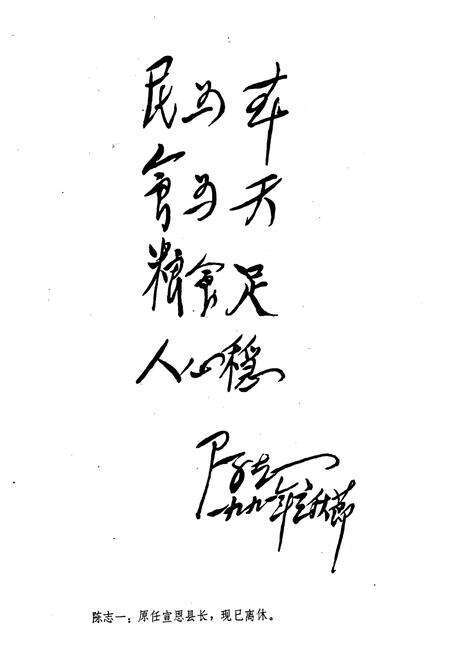 民为本
食为天
粮食足
人心穩
陈志一
一九九一年立秋節
陈志一：原任宣恩县长，现已离休。